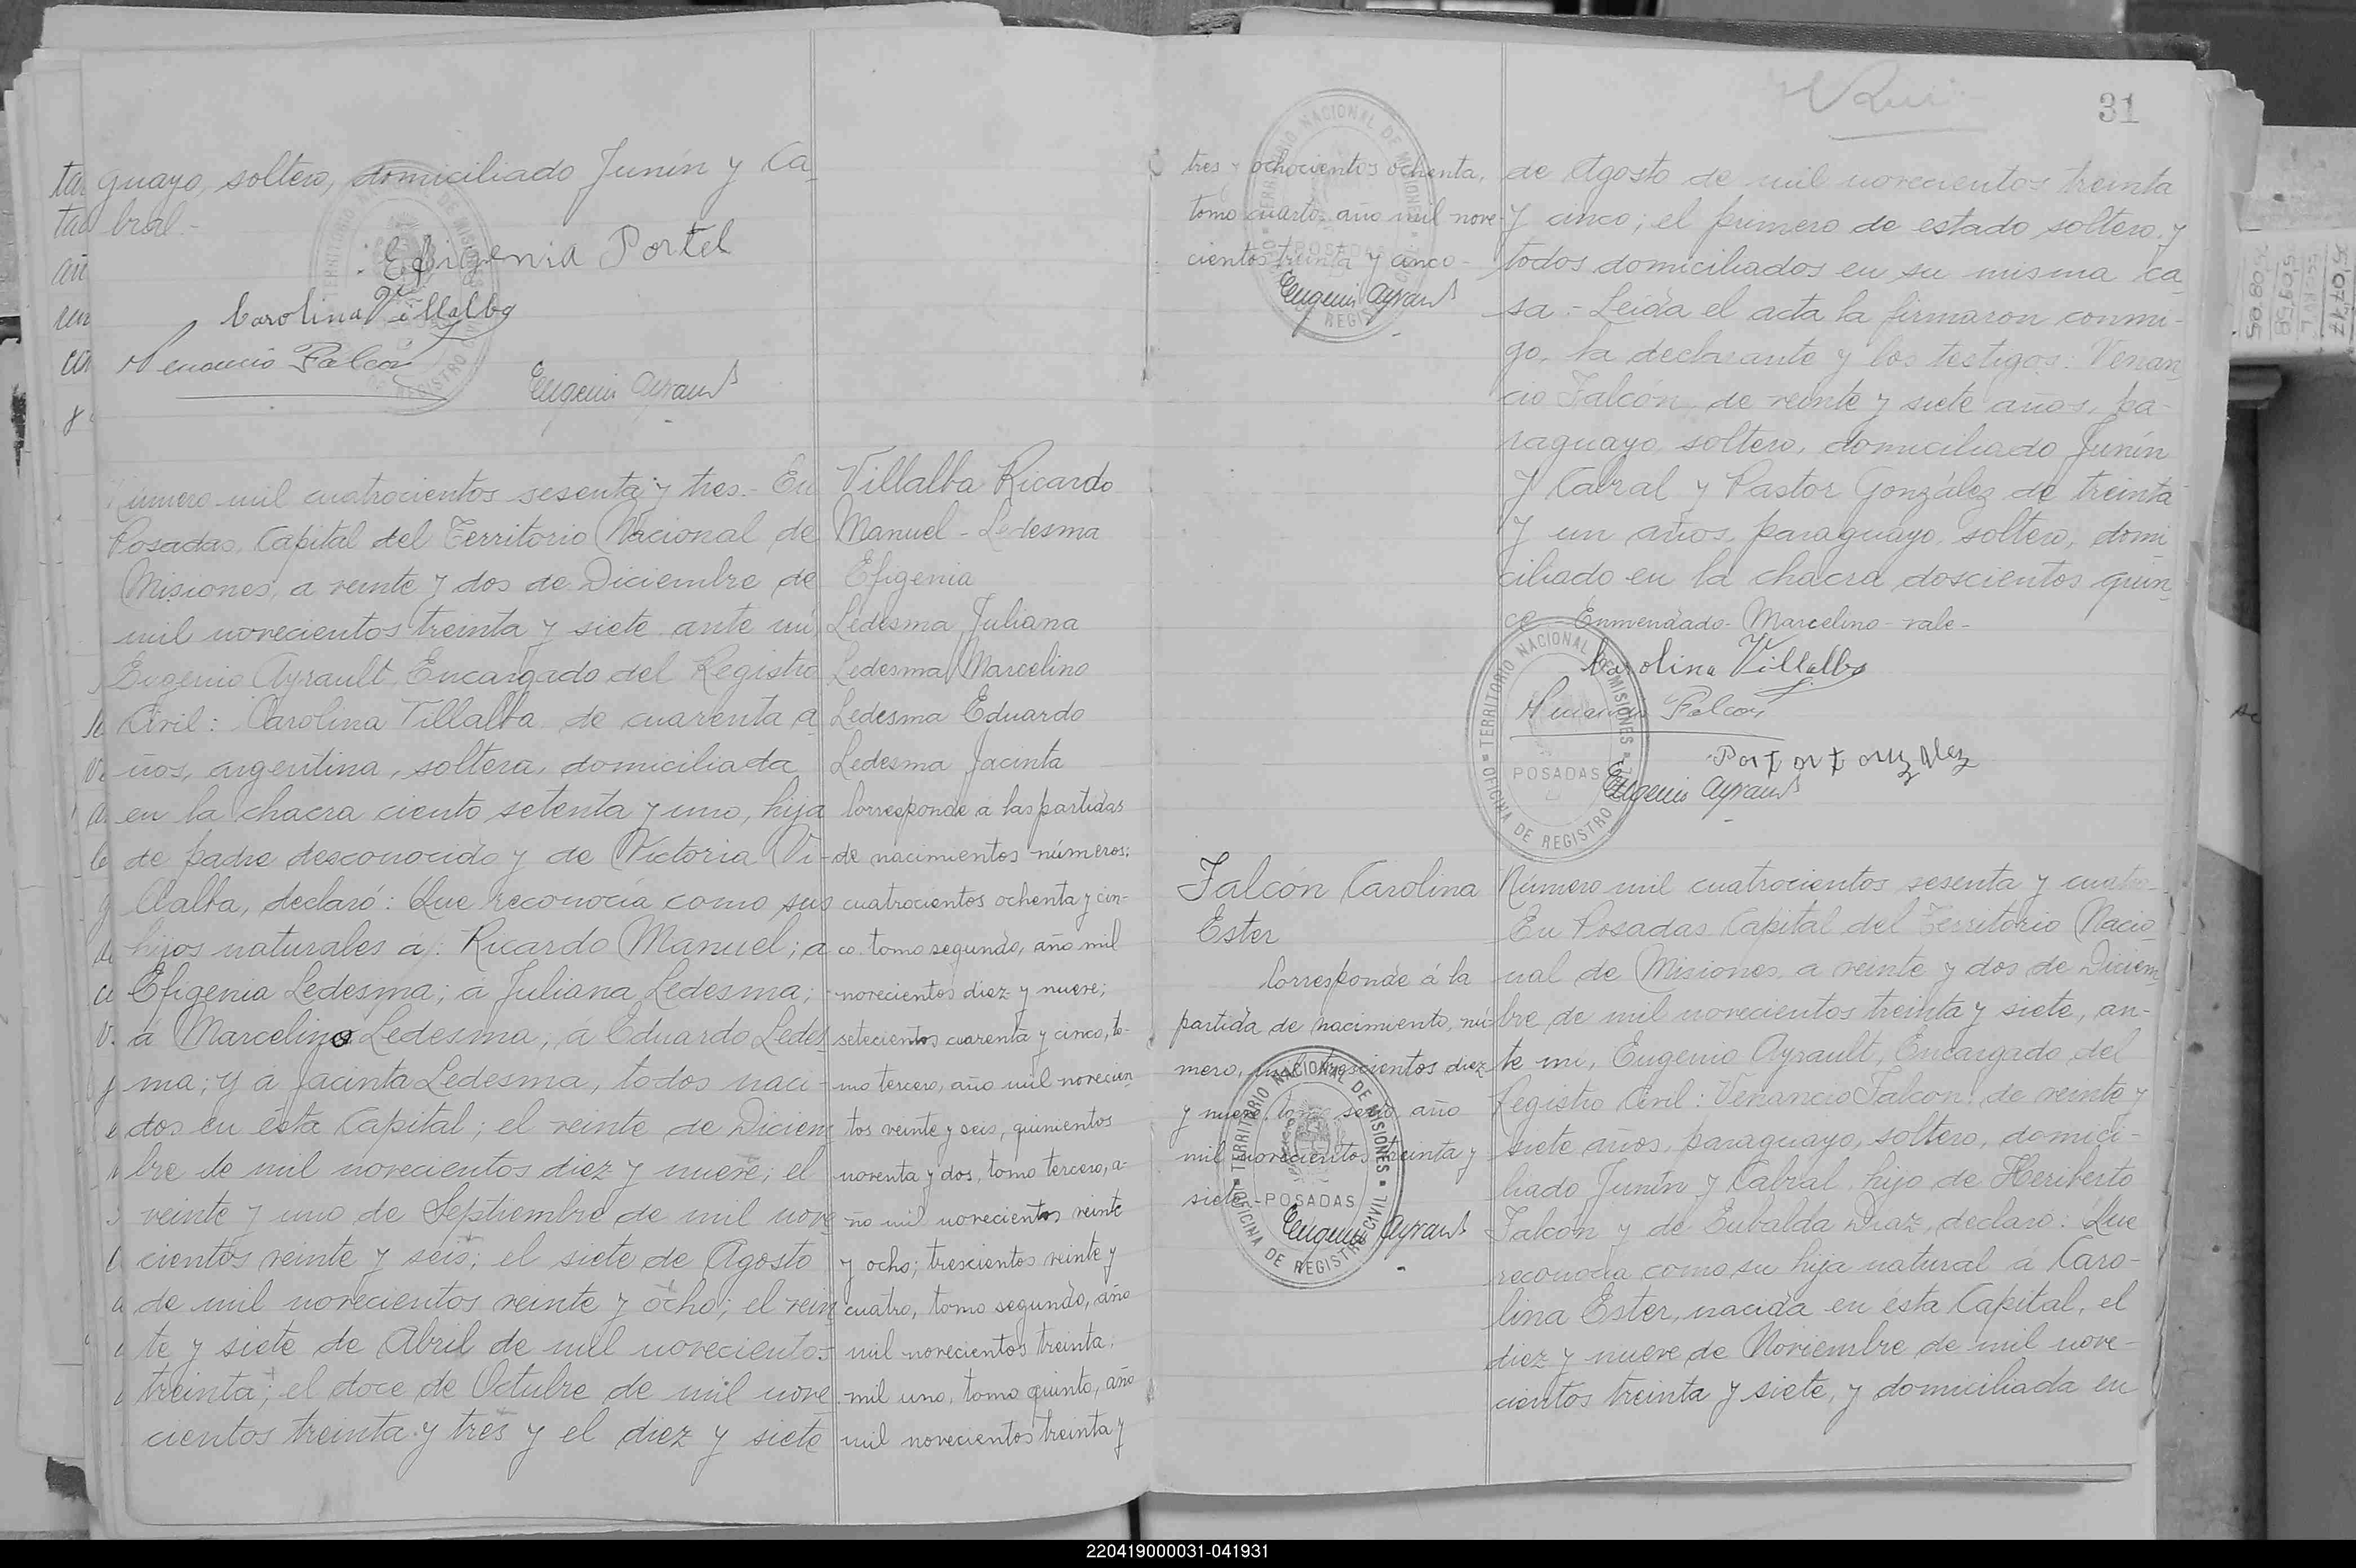 guayo, soltero, domiciliado Junín y Ca-
bral.-
Efigenia Portel
Carolina Villalba
Venancio Falcon
Eugenio Ayrault
Número mil cuatrocientos sesenta y tres.- En
Posadas, Capital del Territorio Nacional de
Misiones, a veinte y dos de Diciembre de
mil novecientos treinta y siete ante mi
Eugenio Ayrault, Encargado del Registro
Civil: Carolina Villalba de cuarenta a
ños, argentina, soltera, domiciliada
en la chacra ciento setenta y uno, hija
de padre desconocido y de Victoria Vi-
llalba, declaró: Que reconocía como sus
hijos naturales á: Ricardo Manuel; a
Efigenia Ledesma; a Juliana Ledesma;
á Marcelino Ledesma, á Eduardo Ledes
ma; y á Jacinta Ledesma, todos naci-
dos en ésta Capital; el veinte de Diciem
bre de mil novecientos diez y nueve; el
veinte y uno de Septiembre de mil nove
cientos veinte y seis; el siete de Agosto
de mil novecientos veinte y ocho; el vein
te y siete de Abril de mil novecientos
treinta; el doce de Octubre de mil nove
cientos treinta y tres y el diez y siete
Villalba Ricardo
Manuel - Ledesma
Efigenia
Ledesma Juliana
Ledesma Marcelino
Ledesma Eduardo
Ledesma Jacinta
Corresponde á las partidas
de nacimientos números:
cuatrocientos ochenta y cin-
co, tomo segundo, año mil
novecientos diez y nueve;
setecientos cuarenta y cinco, to-
mo tercero, año mil novecien
tos veinte y seis, quinientos
noventa y dos, tomo tercero, a-
ño mil novecientos veinte
y ocho; trescientos veinte y
cuatro, tomo segundo, año
mil novecientos treinta;
mil uno, tomo quinto, año
mil novecientos treinta y
31
tres y ochocientos ochenta,
tomo cuarto, año mil nove-
cientos treinta y cinco-
Eugenio Ayrault
TERRITORIO NACIONAL DE MISIONES
POSADAS
OFICINA DE REGISTRO CIVIL
de Agosto de mil novecientos treinta
y cinco; el primero de estado soltero y
todos domiciliados en su misma ca
sa.- Leída el acta la firmaron conmi-
go, la declarante y los testigos: Venan
cio Falcón, de veinte y siete años, pa-
raguayo, soltero, domiciliado Junín
y Cabral y Pastor González de treinta
y un años, paraguayo, soltero, domi
ciliado en la chacra doscientos quin
ce - Enmendado - Marcelino - vale-
Carolina Villalba
Venancio Falcon
Eugenio Ayrault
TERRITORIO NACIONAL DE MISIONES
POSADAS
OFICINA DE REGISTRO
Falcón Carolina
Ester
Corresponde á la
partida de nacimiento, nú
mero, mil trescientos diez
y nueve, tomo sexto, año
mil novecientos treinta y
siete-
Eugenio Ayrault
TERRITORIO NACIONAL DE MISIONES
POSADAS
OFICINA DE REGISTRO CIVIL
Número mil cuatrocientos sesenta y cuatro-
En Posadas Capital del Territorio Nacio
nal de Misiones, a veinte y dos de Diciem
bre de mil novecientos treinta y siete, an-
te mi, Eugenio Ayrault, Encargado del
Registro Civil: Venancio Falcon: de veinte y
siete años, paraguayo, soltero, domici-
liado Junín y Cabral, hijo de Heriberto
Falcón y de Eubalda Diaz, declaro: Que
reconocía como su hija natural á Caro-
lina Ester, nacida en ésta Capital, el
diez y nueve de Noviembre de mil nove-
cientos treinta y siete, y domiciliada en
220419000031-041931